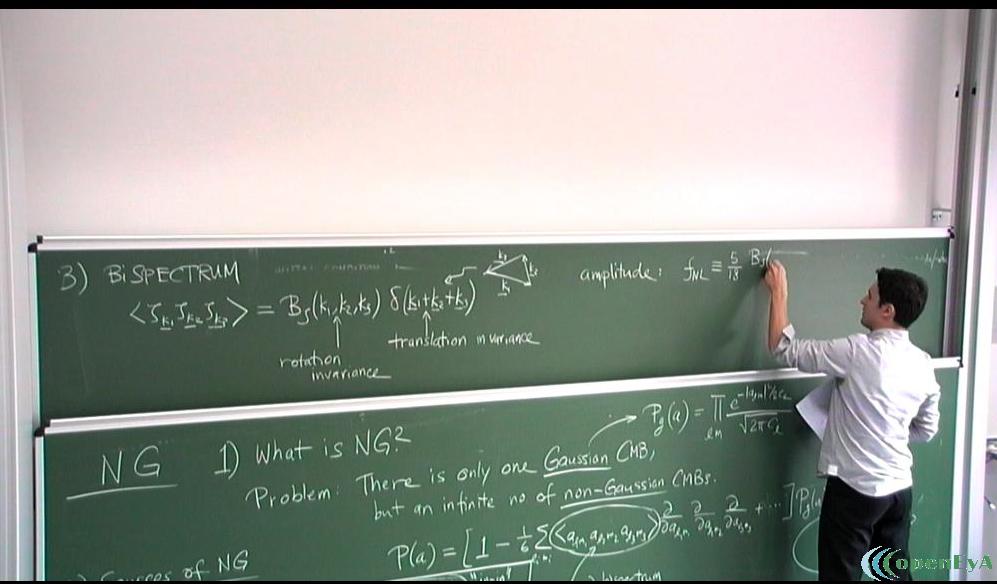 3) BISPECTRUM
⟨ζ_k₁ ζ_k₂ ζ_k₃⟩ = B_ζ(k₁,k₂,k₃) δ(k₁+k₂+k₃)
rotation invariance
translation invariance
k₁
amplitude: f_NL ≡ 5/18 B_ζ(
NG
1) What is NG?
Problem: There is only one Gaussian CMB,
but an infinite no of non-Gaussian CMBs.
P_g(a) = ∏_lm e^{-|a_lm|²/2C_l} / √2πC_l
P(a) = [1 - 1/6 Σ ⟨a_l₁m₁ a_l₂m₂ a_l₃m₃⟩ ∂/∂a_l₁m₁ ∂/∂a_l₂m₂ ∂/∂a_l₃m₃ + ...] P_g(a)
Sources of NG
openEyA